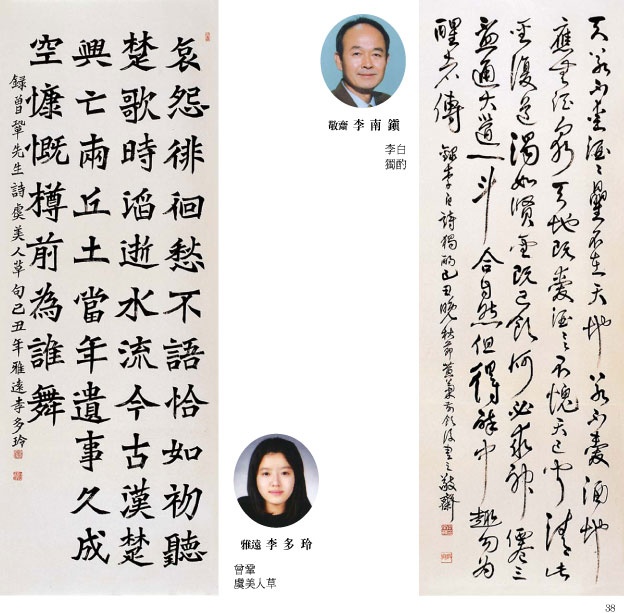 天若不愛酒〻星不在天地若不愛酒地
應無酒泉天地既愛酒〻不愧天已聞清比
聖復道濁如賢聖既已飲何必求神僊三
盃通大道一斗合自然但得醉中趣勿為
醒者傳
錄李白詩獨酌己丑晚秋節 敬齋
敬齋 李南鎭
李白
獨酌
哀怨徘徊愁不語恰如初聽
楚歌時滔逝水流今古漢楚
興亡兩丘土當年遺事久成
空慷慨樽前為誰舞
錄曾鞏先生詩虞美人草句己丑年雅遠李多玲
雅遠 李多玲
曾鞏
虞美人草
38